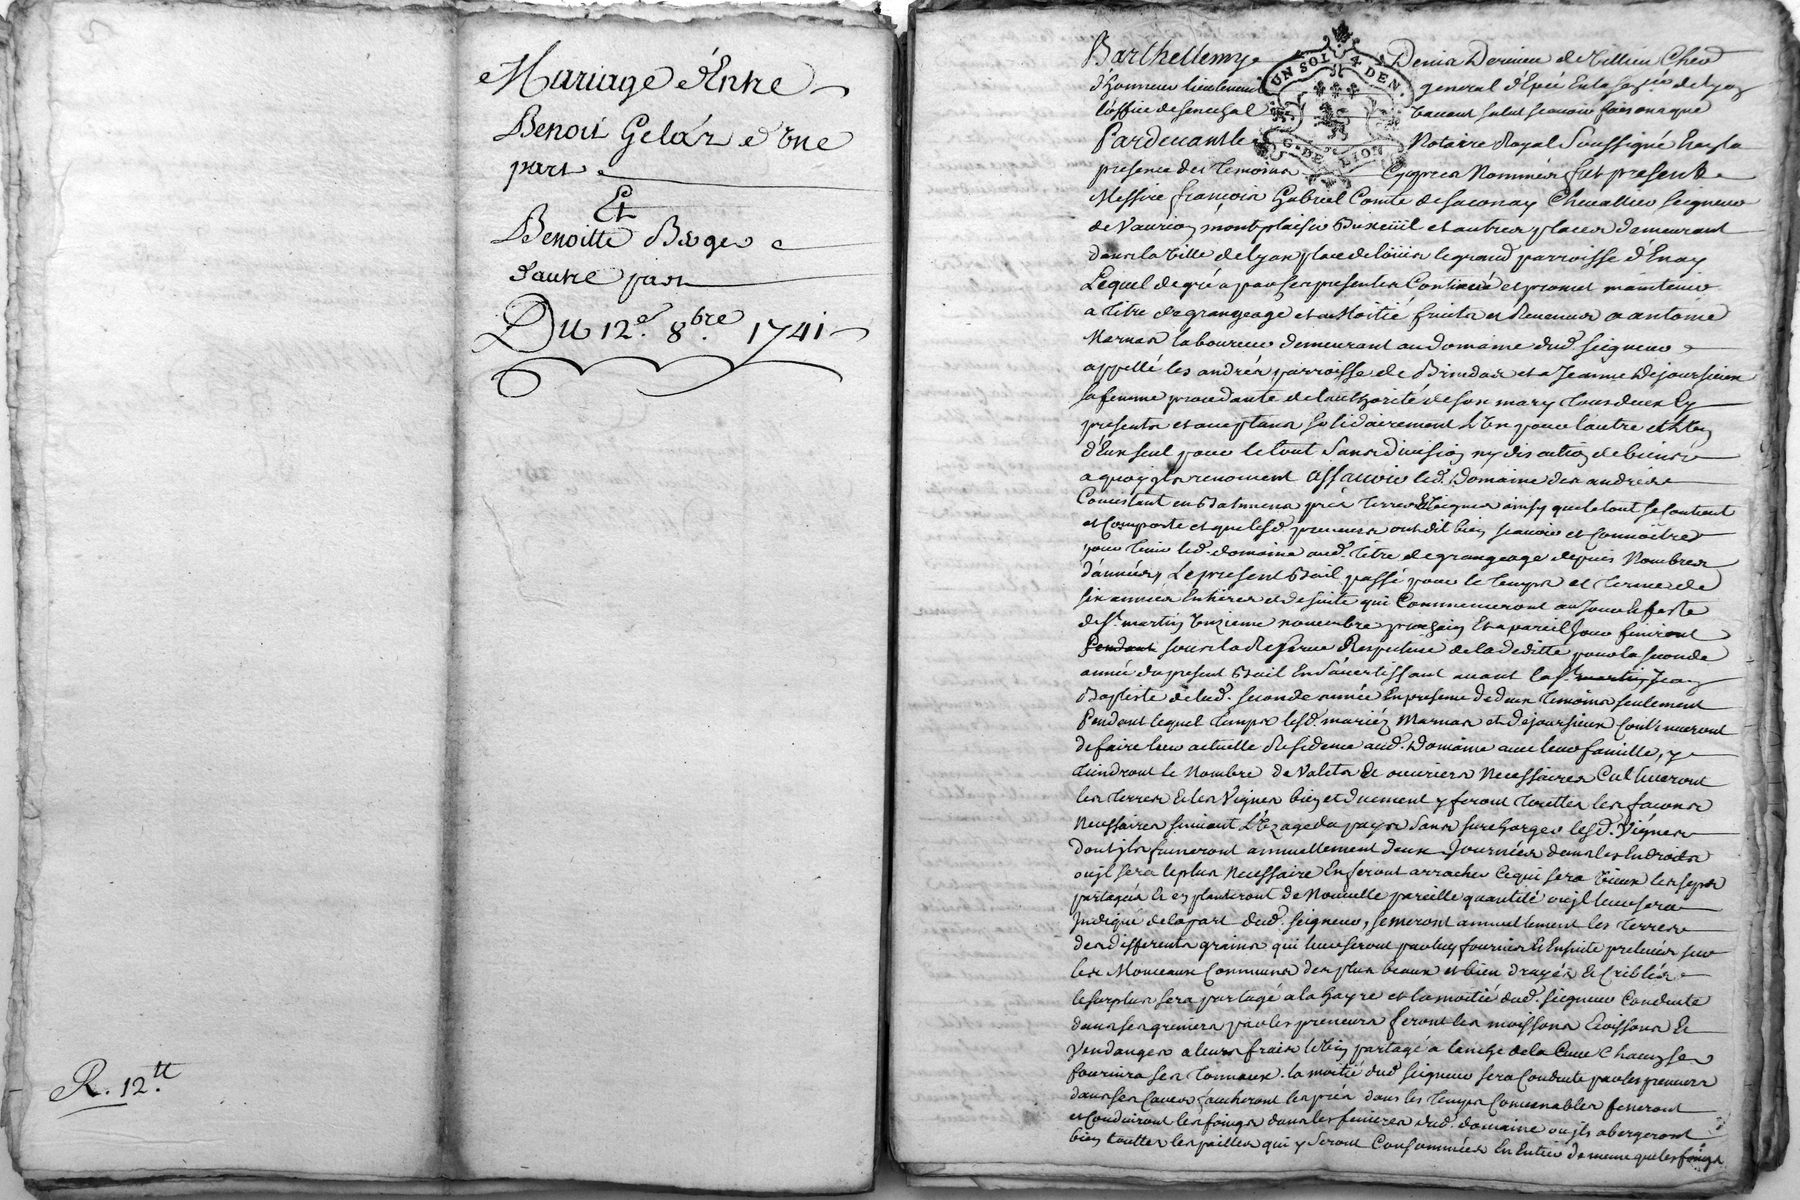 Mariage d'Entre
Benoit Geláz d'Vne
part
Et
Benoitte Berger
d'autre part
Du 12e. 8bre. 1741
R. 12.tt
UN SOL 4 DEN.
G. DE LION
Barthellemy Denis Dervieu de Villieu Chev
d'honneur lieutenent general d'Epée En la de Lyon
l'office de senechal Vacant salut scavoir faisons que
Pardevant le Notaire Royal Soussigné En la
presence des temoins Cyaprès Nommés fut present
Messire françois Gabriel Comte de saconay Chevallier seigneur
de Vaurion montplaisir Buxeüil et autres places demeurant
dans la Ville de Lyon place de loüis le grand parroisse d'Enay
Lequel de gré a par ses presentes Continüé et promet maintenir
a titre de grangeage et a Moitié fruits et Revenus a antoine
Marnas laboureur demeurant au domaine dud. seigneur
appellé les andrés parroisse de Brindas et a Jeanne Dejoursieux
sa femme procedante de l'authorité de son mary tous deux Cy
presents et acceptans solidairement L'Vn pour l'autre et
d'Eux seul pour le tout Sans division ny discution de biens
a quoy ils renoncent assavoir led. Domaine des andrés
Consistant en Batimens prés terres Vignes ainsy que le tout se Contient
et Comporte et que lesd. preneurs ont dit bien scavoir et Connoître
pour tenir led. domaine aud. titre de grangeage depuis Nombres
d'années, Le present Bail passé pour le temps et terme de
six années Entieres et de suite qui Commenceront au Jour et feste
de St. martin Vnzieme novembre prochain Et a pareil Jour finiront
Pendant sous la Reserve Respective de la deditte pour la seconde
année du present Bail En s'avertissant avant la St. martin Jean
Baptiste de lad. seconde année En presence de deux temoins seulement
Pendant lequel temps lesd. mariés Marnas et Dejoursieux Continueront
de faire leur actuelle Residence aud. Domaine avec leur famille, y
tiendront le Nombre de Valets Et ouvriers Necessaires Cultiveront
les terres & les Vignes bien et duement y feront touttes les facons
Necessaires suivant L'Vzage du pays Sans surcharger lesd. Vignes
dont ils fumeront annuellement deux Journées dans les Endroits
ou il sera le plus Necessaire En feront arracher ce qui sera Vieux les seps
partagés Et en planteront de Nouvelle pareille quantité ou il leur sera
Indiqué de la part dud. seigneur, semeront annuellement les terres
des differents grains qui leur seront par luy fournis Et Ensuite prelevés sur
les Monceaux Communs des plus beaux et bien drayés & Criblés
le surplus sera partagé a la hayre et la moitié dud. seigneur Conduite
dans ses greniers par les preneurs feront les moissons Et
Vendanges a leurs frais le Vin partagé a l'anche de la Cuve Chacun
fournira ses tonneaux la moitié dud. seigneur sera Conduite par les preneurs
dans ses Caves, faucheront les prés dans les temps Convenables feneront
et Conduiront les foings dans les fenieres dud. domaine ou ils abergeront
bien touttes les pailles qui y Seront Consommées En Entier de meme que les foings